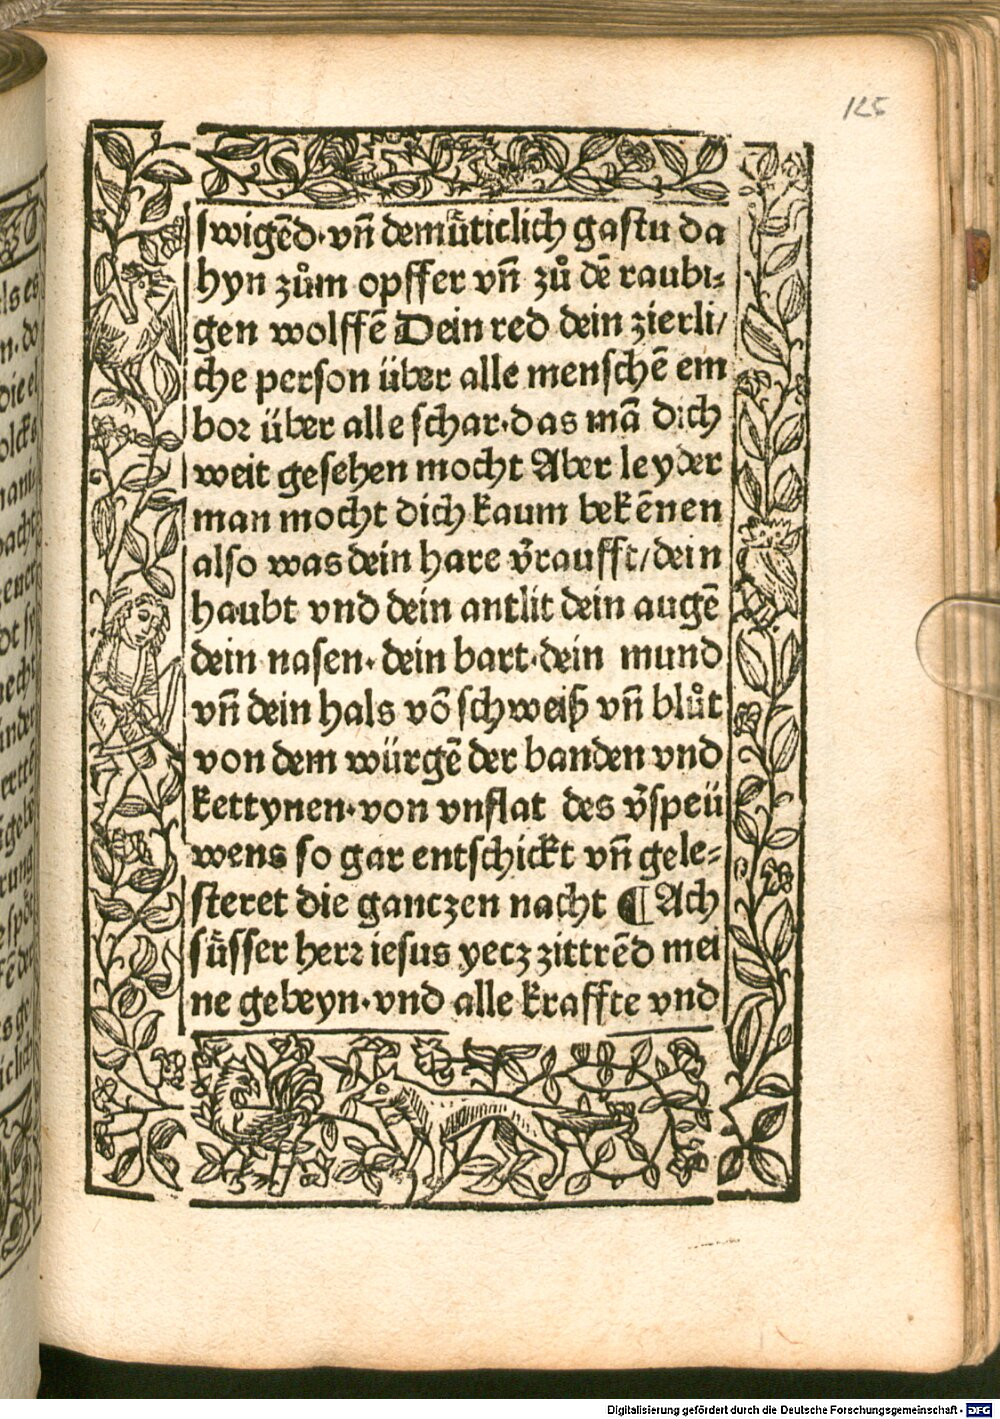 125
swigēd·vn̄ demüticlich gastu da
hyn zům opffer vn̄ zů dē raubi⸗
gen wolffē Dein red dein zierli/
che person über alle menschē em
boꝛ über alle schar·das mā dich
weit gesehen mocht Aber leyder
man mocht dich kaum bekēnen
also was dein hare v̄raufft/dein
haubt vnd dein antlit dein augē
dein nasen·dein bart·dein mund
vn̄ dein hals vō schweiß vn̄ blůt
von dem würgē der banden vnd
kettynen·von vnflat des v̄speü
wens so gar entschickt vn̄ gele⸗
steret die gantzen nacht ¶ Ach
süsser herꝛ iesus yecz zittrēd mei
ne gebeyn·vnd alle kraffte vnd
Digitalisierung gefördert durch die Deutsche Forschungsgemeinschaft - DFG